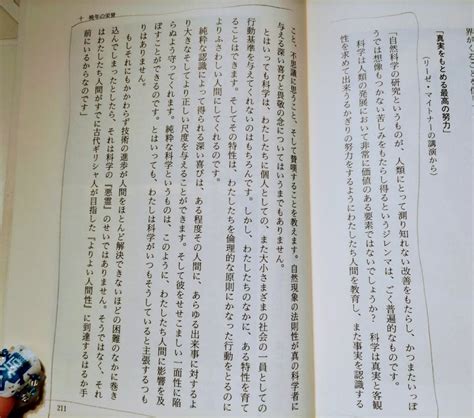 「真実をもとめる最高の努力」
（リーゼ・マイトナーの講演から）
「自然科学の研究というものが、人類にとって測り知れない改善をもたらし、かつまたいっぽ
うでは想像もつかない苦しみをもたらし得るというジレンマは、ごく普遍的なものです。
科学は人類の発展において非常に価値のある要素ではないでしょうか？　科学は真実と客観
性を求めて出来うるかぎりの努力をするようにわたしたち人間を教育し、また事実を認識する
十　晩年の栄誉
ことを、不思議に思うこと、そして賛嘆することを教えます。自然現象の法則性が真の科学者に
与える深い喜びと畏敬の念についてはいうまでもありません。
とはいっても科学は、わたしたちに個人としての、また大小さまざまの社会の一員としての
行動基準を与えてくれないのはもちろんです。しかし、わたしたちのなかにある特性を育て
ることはできます。そしてその特性は、わたしたちを倫理的な原則にかなった行動をとるのに
よりふさわしい人間にしてくれるのです。
純粋な認識によって得られる深い喜びは、ある程度その人間に、あらゆる出来事に対するよ
り大きなそしてより正しい尺度を与えることができます。そして彼をせせこましい一面性に陥
らぬよう守ってくれます。純粋な科学というものは、このように、わたしたち人間に影響を及
ぼすことができるのです。とはいっても、わたしは科学がいつもそうしていると主張するつも
りはありません。
もしそれにもかかわらず技術の進歩が人間をほとんど解決できないほどの困難のなかに巻き
込んでしまったとしたら、それは科学の『悪霊』のせいではありません。そうではなく、それ
はわたしたち人間がすでに古代ギリシャ人が目指した『よりよい人間性』に到達するはるか手
前にいるからなのです」
211